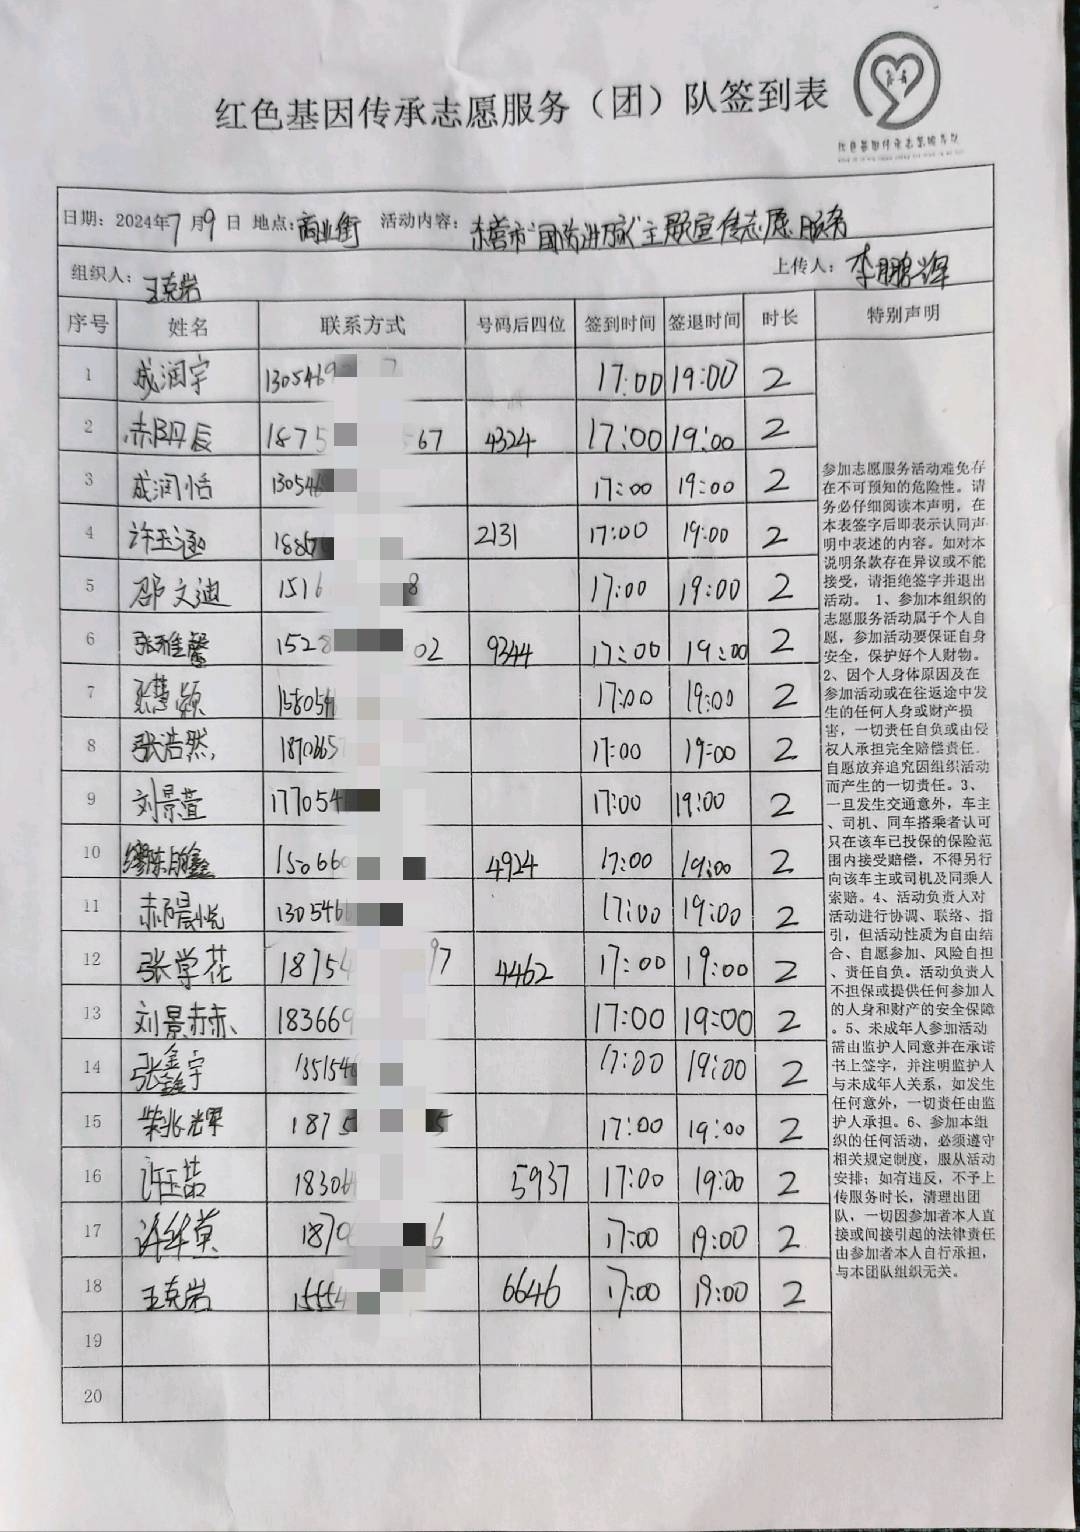 红色基因传承志愿服务（团）队签到表
红色基因传承志愿服务队
日期：2024年7月9日 地点：商业街 活动内容：东营市"国防讲习 主题宣传志愿服务
组织人：王克岩 上传人：李鹏辉
序号 姓名 联系方式 号码后四位 签到时间 签退时间 时长 特别声明
1 成润宇 130546 17:00 19:00 2
2 丹辰 1875 67 4324 17:00 19:00 2
3 成润恬 13054 17:00 19:00 2
4 许玉涵 1885 2131 17:00 19:00 2
5 邵文迪 1516 8 17:00 19:00 2
6 张雅馨 1528 02 9344 17:00 19:00 2
7 张慧颖 158054 17:00 19:00 2
8 张浩然, 1870365 17:00 19:00 2
9 刘景萱 177054 17:00 19:00 2
10 鑫 15066 4924 17:00 19:00 2
11 晨悦 130546 17:00 19:00 2
12 张学花 18754 97 4462 17:00 19:00 2
13 刘景赫 183669 17:00 19:00 2
14 张鑫宇 135154 17:00 19:00 2
15 柴兆辉 1875 5 17:00 19:00 2
16 许玉喆 18306 5937 17:00 19:00 2
17 许华英 1870 6 17:00 19:00 2
18 王克岩 15554 6646 17:00 19:00 2
19
20
参加志愿服务活动难免存
在不可预知的危险性。请
务必仔细阅读本声明，在
本表签字后即表示认同声
明中表述的内容。如对本
说明条款存在异议或不能
接受，请拒绝签字并退出
活动。 1、参加本组织的
志愿服务活动属于个人自
愿，参加活动要保证自身
安全，保护好个人财物。
2、因个人身体原因及在
参加活动或在往返途中发
生的任何人身或财产损
害，一切责任自负或由侵
权人承担完全赔偿责任。
自愿放弃追究因组织活动
而产生的一切责任。3、
一旦发生交通意外，车主
、司机、同车搭乘者认可
只在该车已投保的保险范
围内接受赔偿，不得另行
向该车主或司机及同乘人
索赔。4、活动负责人对
活动进行协调、联络、指
引，但活动性质为自由结
合、自愿参加、风险自担
、责任自负。活动负责人
不担保或提供任何参加人
的人身和财产的安全保障
。5、未成年人参加活动
需由监护人同意并在承诺
书上签字，并注明监护人
与未成年人关系，如发生
任何意外，一切责任由监
护人承担。6、参加本组
织的任何活动，必须遵守
相关规定制度，服从活动
安排；如有违反，不予上
传服务时长，清理出团
队，一切因参加者本人直
接或间接引起的法律责任
由参加者本人自行承担，
与本团队组织无关。